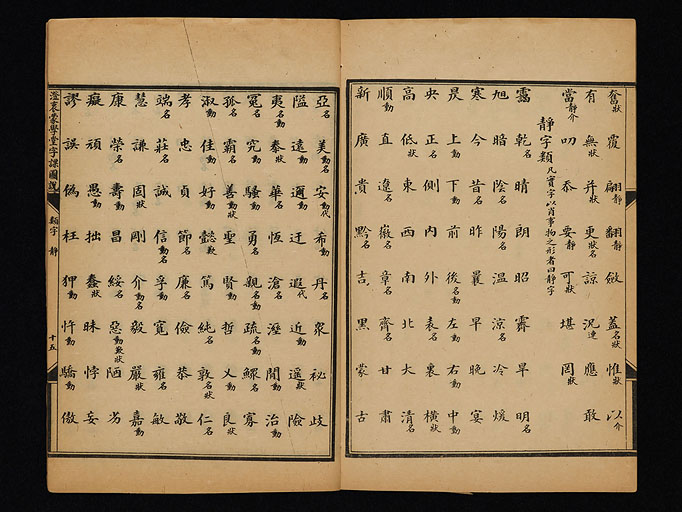 奮狀 覆 翩靜 翻靜 斂 蓋名狀 惟狀 以介
有 無狀 幷狀 更狀名 諒 況連 應 敢
當靜介 叨 忝 要靜 可狀 堪 罔狀
靜字類 凡實字以肖事物之形者曰靜字
靄 乾名 晴 朗 昭 霽 旱 明名
旭 暗 陰名 陽名 溫 涼名 冷 煖
寒 今 昔名 昨 曩 早 晚 宴
昃 上動 下動 前 後名動 左動 右動 中動
央 正名 側 內 外 表名 裏 橫狀
高 低狀 東 西 南 北 大 清名
順動 直 遼名 巖名 章名 齊名 甘 肅
新 廣 貴 黔名 吉 黑 蒙 古
亞名 美動名 安動代 希動 丹名 衆 祕 歧
隘 遠動 邇動 迂 遐代 近動 遥狀 險
夷名動 泰狀 華名 恆 滄名 溼 閒動 治動
冤名 究動 騷動 勇名 親名動 疏名動 鰥名 寡
孤名 霸名 善動狀 聖 賢動 哲 乂動 良狀
淑動 佳動 好動 懿歎 篤 純名 敦名狀 仁名
孝 忠 貞 節名 廉名 儉 恭 敬
端名 莊名 誠 信動名 孚動 寬 雍名 敏
慧 謙 固狀 剛 介動名 毅 嚴狀 嘉動
康名 榮名 壽動 昌 綏名 惡動歎狀 陋 劣
癡 頑 愚動 拙 蠢狀 昧 悖 妄
謬 誤 偽 枉 狎動 忤動 驕動 傲
澄衷蒙學堂字課圖說
類字 靜
十五